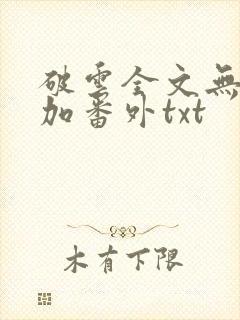 破雲全文無
加番外txt
木有下限